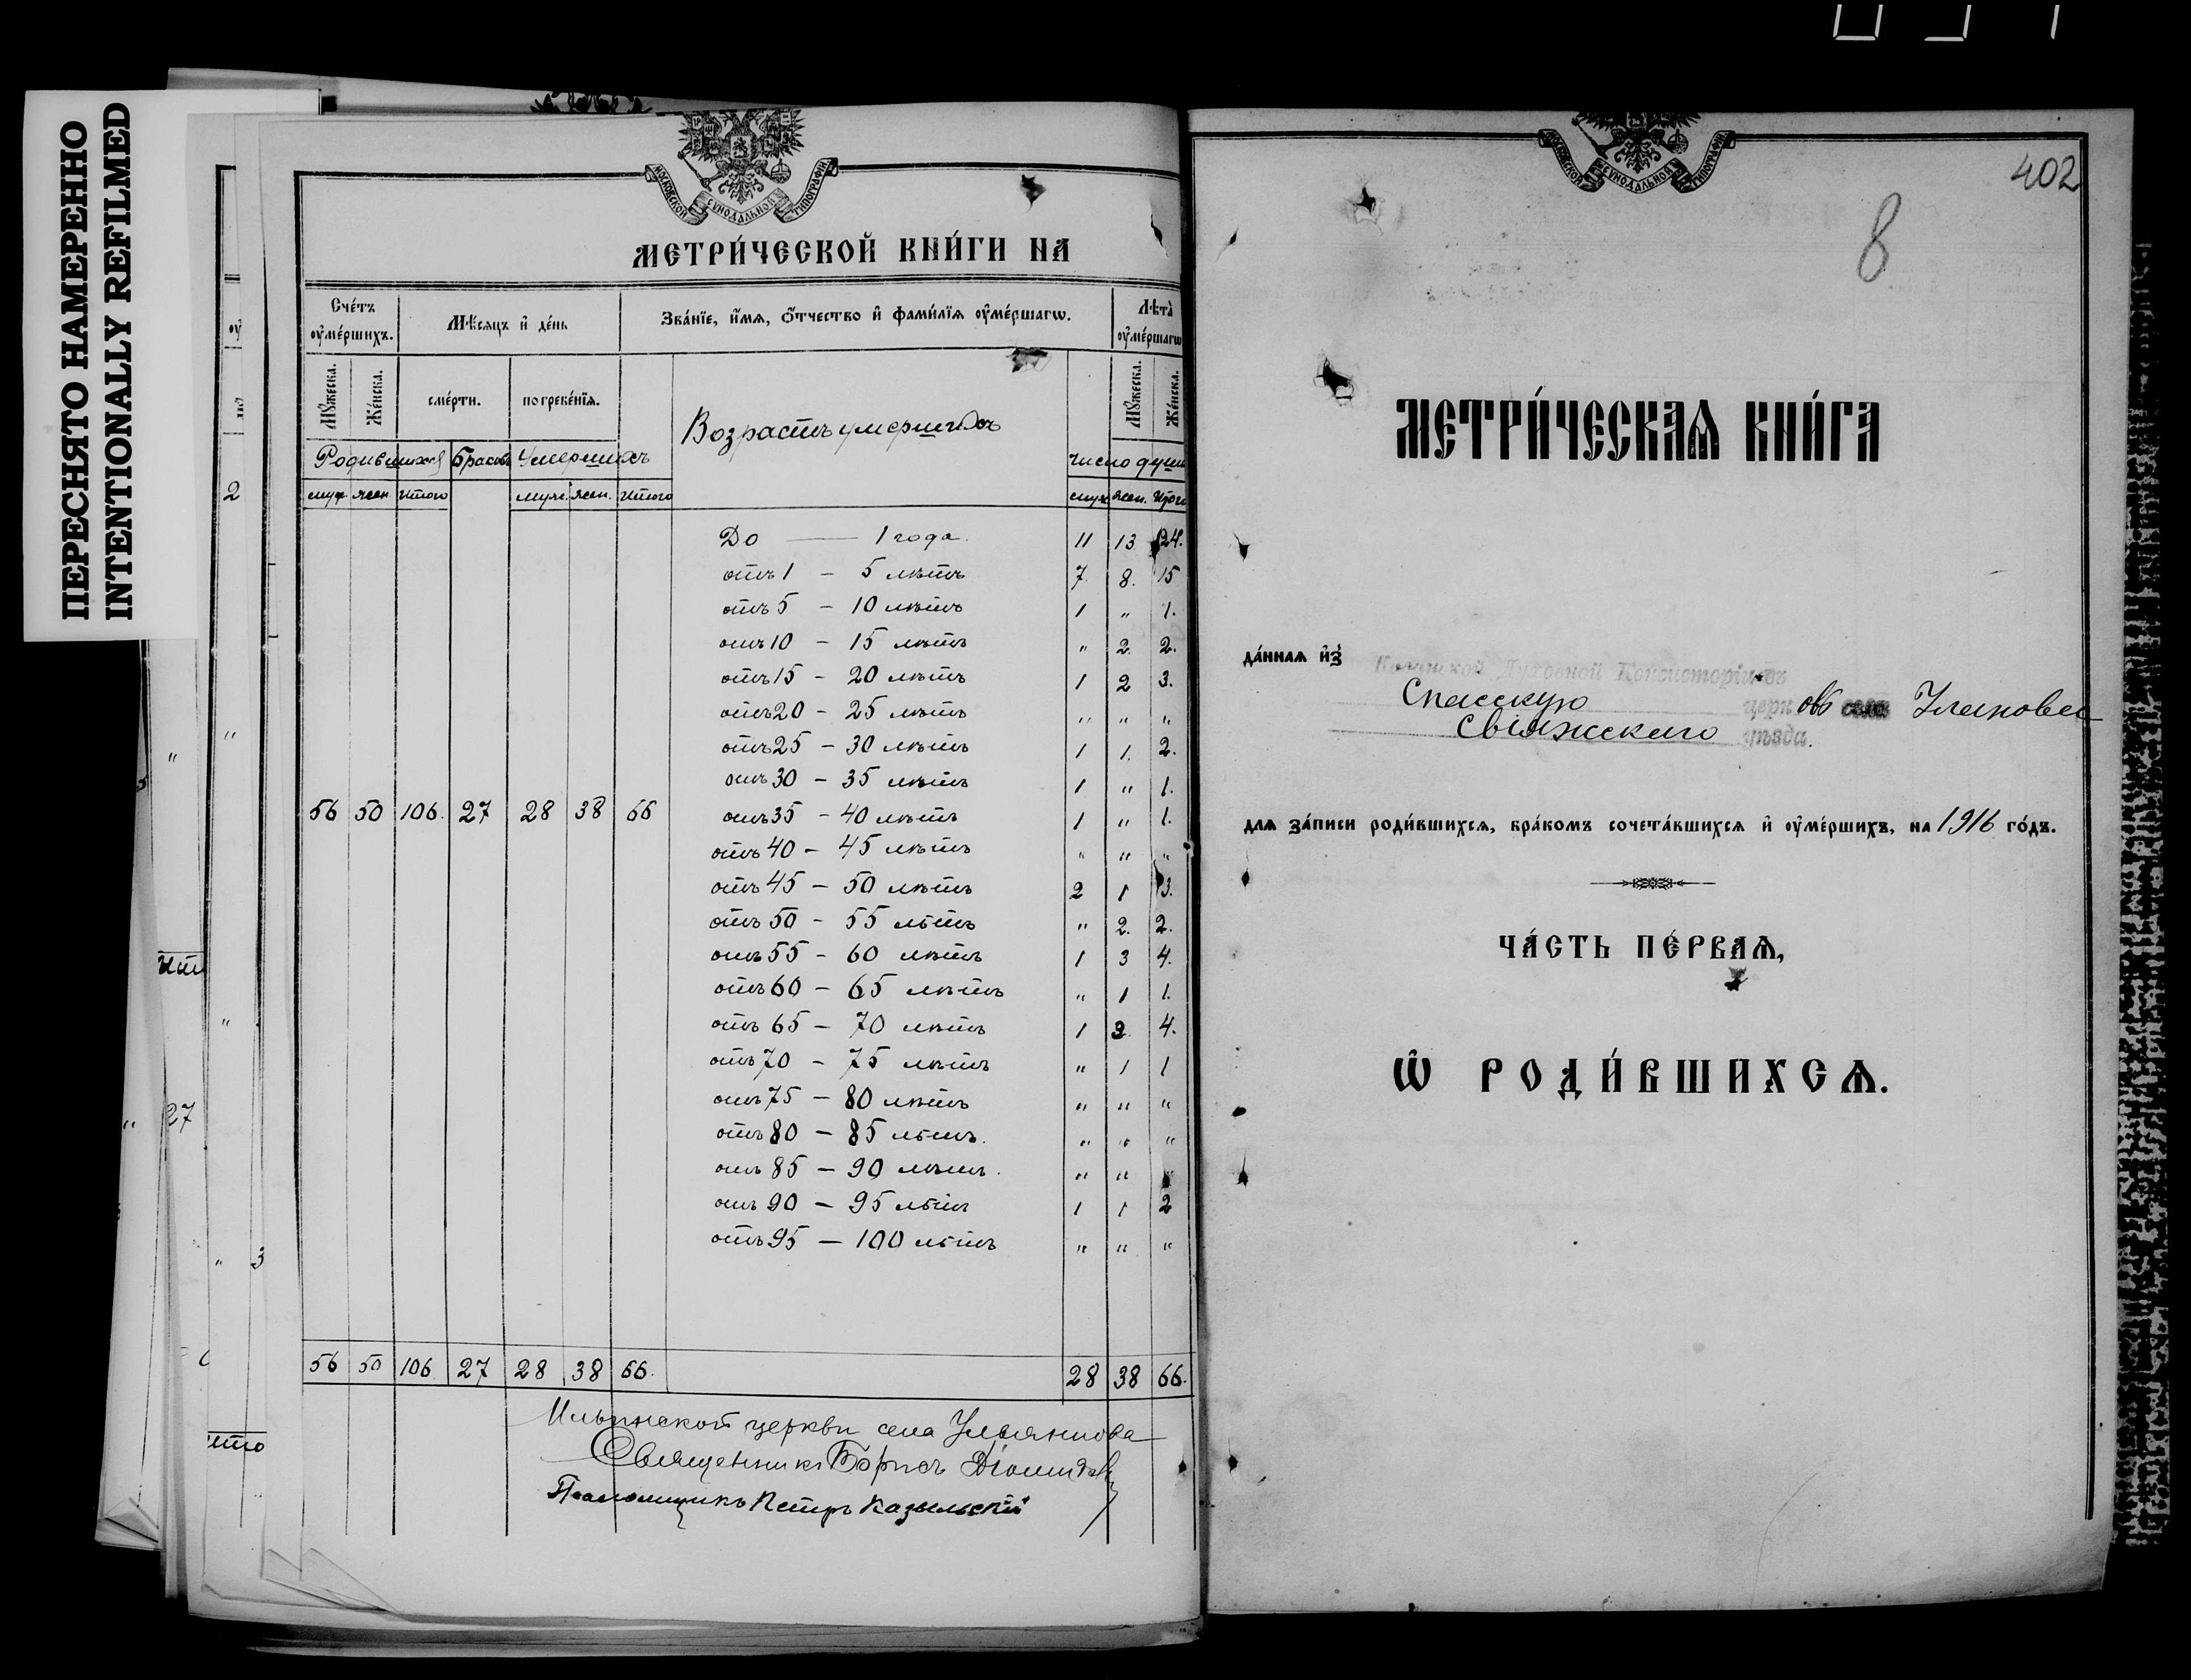 ПЕРЕСНЯТО НАМЕРЕННО
INTENTIONALLY REFILMED
МОСКОВСКОЙ СѴНОДАЛЬНОЙ ТИПОГРАФІИ
МЕТРИ́ЧЕСКОЙ КНИ́ГИ НА
Сче́тъ ᲂу҆ме́ршихъ.
Мѣ́сяцъ и҆ де́нь
Зва́нїе, и҆́мѧ, ѻ҆́тчество и҆ фами́лїѧ ᲂу҆ме́ршагѡ.
Лѣ́та ᲂу҆ме́ршагѡ
Мꙋ́жеска.
Же́нска.
сме́рти.
погребе́нїѧ.
Возрастъ умершихъ
Мꙋ́жеска.
Же́нска.
Родившихся Браковъ Умершихъ
число душъ
муж жен. итого муж. жен. итого
муж жен. Итого
До — 1 года. 11 13 24.
отъ 1 – 5 лѣтъ 7. 8. 15
отъ 5 – 10 лѣтъ 1 „ 1.
отъ 10 – 15 лѣтъ „ 2. 2.
отъ 15 – 20 лѣтъ 1 2 3.
отъ 20 – 25 лѣтъ „ „ „
отъ 25 – 30 лѣтъ 1 1. 2.
отъ 30 – 35 лѣтъ 1 „ 1.
56 50 106. 27 28 38 66 отъ 35 – 40 лѣтъ 1 „ 1.
отъ 40 – 45 лѣтъ „ „ „
отъ 45 – 50 лѣтъ 2 1 3.
отъ 50 – 55 лѣтъ „ 2. 2.
отъ 55 – 60 лѣтъ 1 3 4.
отъ 60 – 65 лѣтъ „ 1 1.
отъ 65 – 70 лѣтъ 1 3 4.
отъ 70 – 75 лѣтъ „ 1 1
отъ 75 – 80 лѣтъ „ „ „
отъ 80 – 85 лѣтъ. „ „ „
отъ 85 – 90 лѣтъ. „ „ „
отъ 90 – 95 лѣтъ 1 1 2
отъ 95 – 100 лѣтъ „ „ „
56 50 106 27 28 38 66. 28 38 66.
Ильинской церкви села Ульянкова
Священникъ Борисъ
Псаломщикъ Петръ Казыльскій
МОСКОВСКОЙ СѴНОДАЛЬНОЙ ТИПОГРАФІИ
402
8
МЕТРИ́ЧЕСКАѦ КНИ́ГА
да́ннаѧ и҆з̾ Казанской Духовной Консисторіи въ
Спасскую церковь села
Свіяжскаго уѣзда.
для за́писи роди́вшихсѧ, бра́комъ сочета́вшихсѧ и҆ ᲂу҆ме́ршихъ, на 1916 го́дъ.
ЧА́СТЬ ПЕ́РВАѦ,
Ѡ҆ РОДИ́ВШИХСѦ.